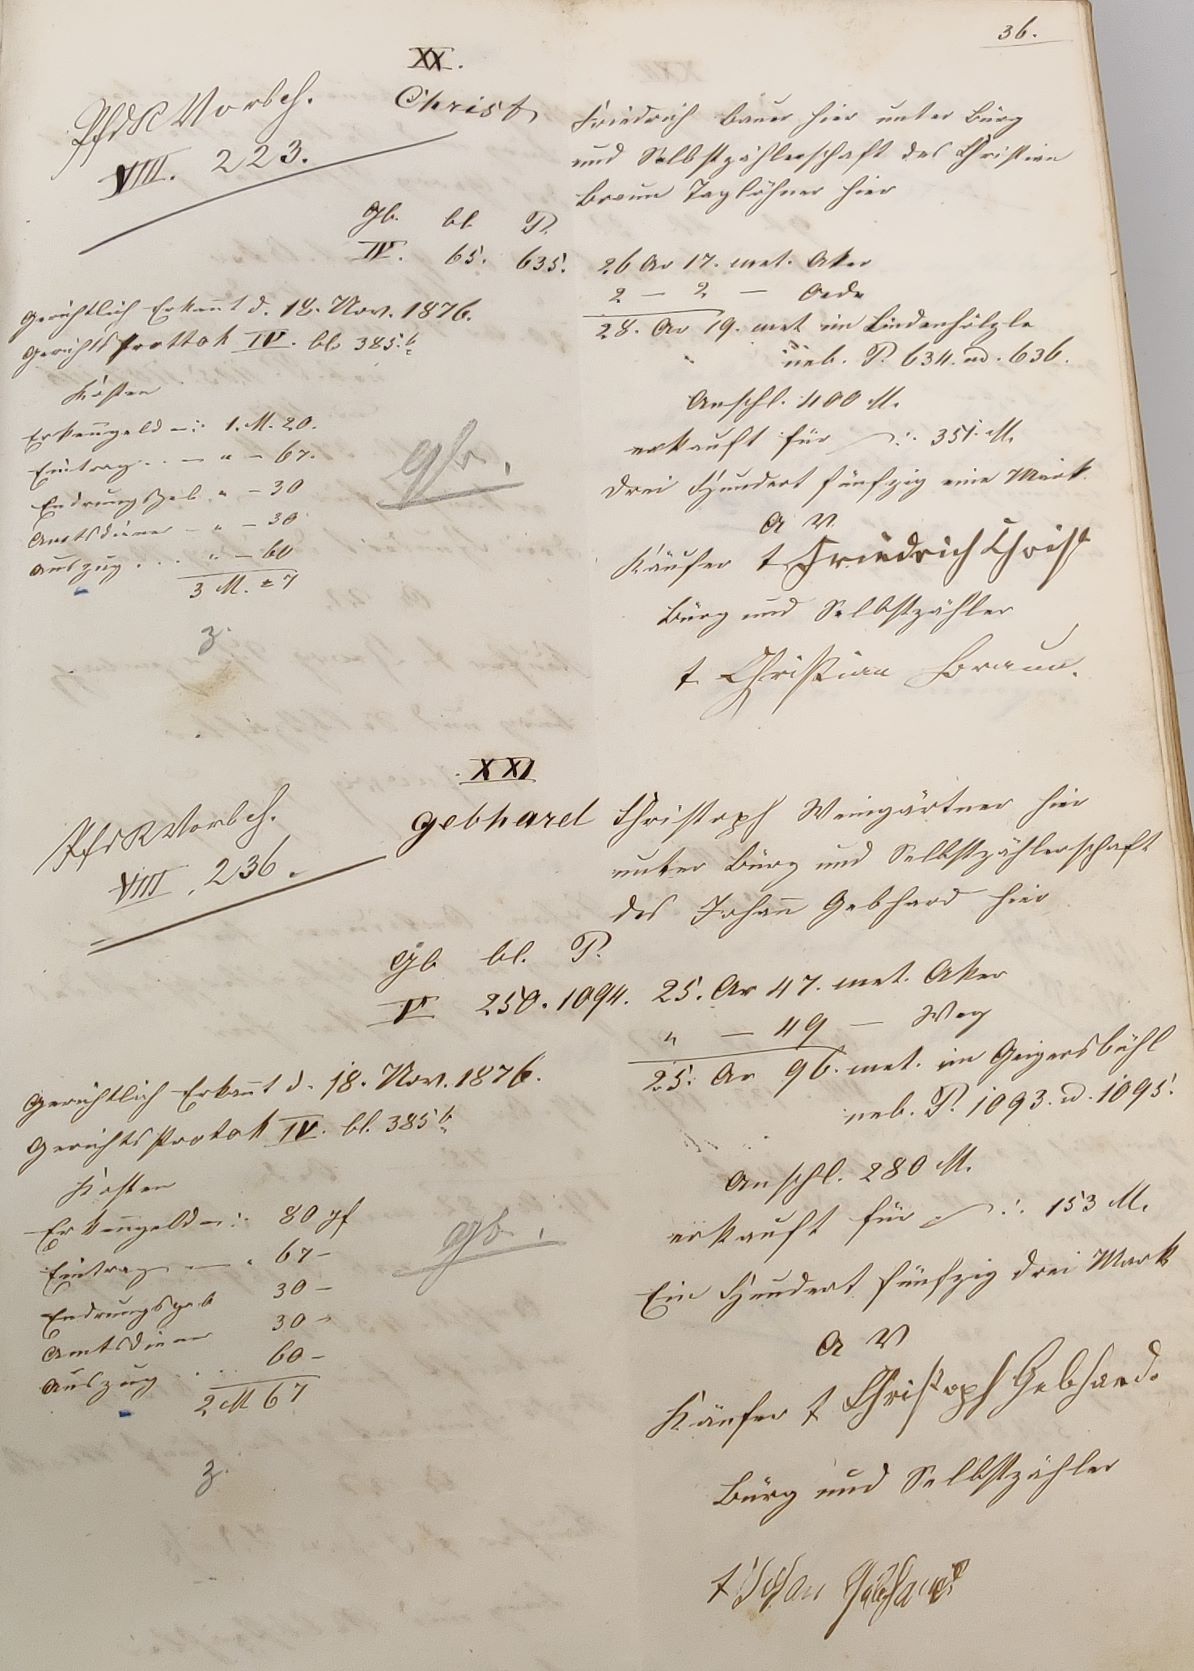 36.
XX.
PfdRVorbeh.
VIII. 223.
Christ, Friedrich bauer hier unter Bürg
und Selbstzählerschaft des Christian
Braun Taglöhner hier
Gb. bl. P.
IV. 65. 635. 26 Ar 17. met. Aker
2 — 2 — Oede
28. Ar 19. met im Lindenhölzle
neb. P. 634. u. 636.
Gerichtlich Erkannt d. 18. Nov. 1876.
Gerichts Prottok IV. bl. 385.b
Anschl. 400 M.
erkauft für 351. M.
Drei Hundert fünfzig eine Mark
Kosten
Erkenngeld 1. M. 20.
Eintrag . . — " — 67.
Endrungsgeb. " — 30
Amtsdiener — " — 30
Auszug . . . " — 60
3 M. 7
gb.
z.
A V
Käufer t Friedrich Christ
Bürg und Selbstzähler
t Christian Braun.
XXI
PfdRVorbeh.
VIII. 236.
Gebhard Christoph Weingärtner hier
unter Bürg und Selbstzählerschaft
des Johann Gebhard hier
Gb bl. P.
V 250. 1094. 25. Ar 47. met. Aker
" — 49 — Weg
25. Ar 96. met. im Geigersbühl
neb. P. 1093. u. 1095.
Gerichtlich Erkannt d. 18. Nov. 1876.
Gerichts Protok IV. bl. 385 b
Anschl. 280 M.
erkauft für 153 M.
Ein Hundert fünfzig drei Mark
Kosten
Erkenngeld 80 pf
Eintrag — " 67 —
Endrungsgeb 30 —
Amtsdiener 30 —
Auszug . . . 60 —
2 M 67
gb.
z.
A V
Käufer t Christoph Gebhard.
Bürg und Selbstzähler
t Johan Gebhardt